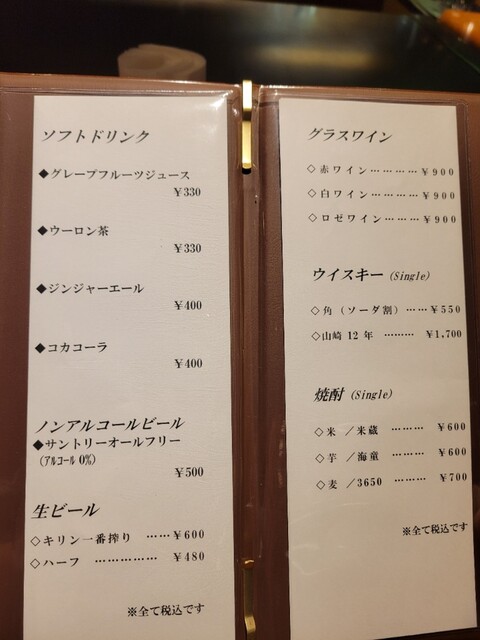 ソフトドリンク
◆グレープフルーツジュース
¥330
◆ウーロン茶
¥330
◆ジンジャーエール
¥400
◆コカコーラ
¥400
ノンアルコールビール
◆サントリーオールフリー
(アルコール 0%)
¥500
生ビール
◇キリン一番搾り ……¥600
◇ハーフ …………… ¥480
※全て税込です
グラスワイン
◇赤ワイン…………¥900
◇白ワイン…………¥900
◇ロゼワイン………¥900
ウイスキー (Single)
◇角（ソーダ割）……¥550
◇山崎 12 年 ……… ¥1,700
焼酎 (Single)
◇米 ／米蔵 ……… ¥600
◇芋 ／海童 ……… ¥600
◇麦 ／3650 ……… ¥700
※全て税込です